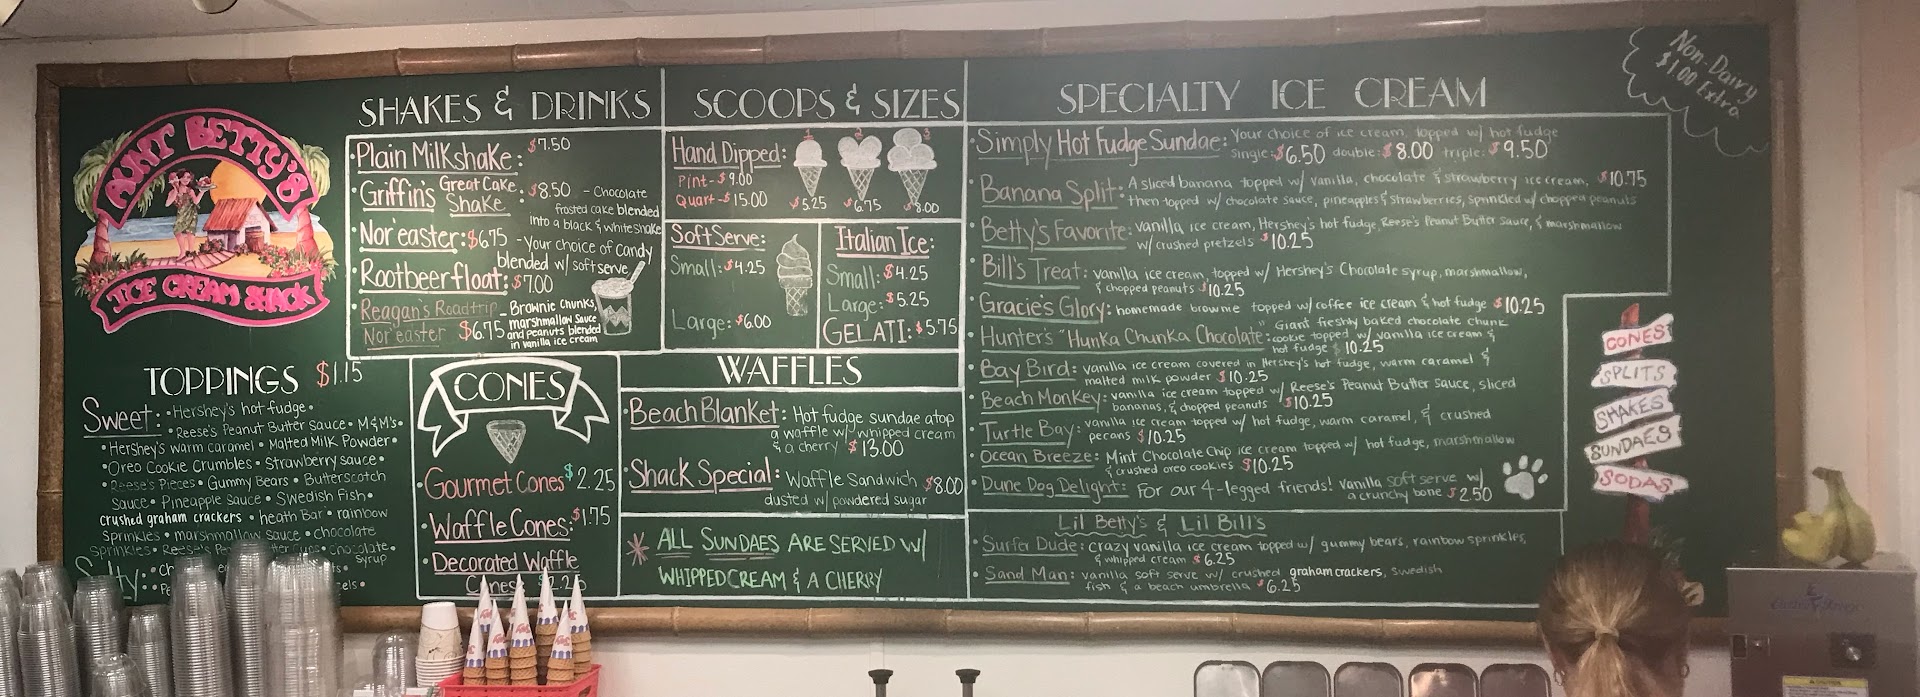 AUNT BETTY'S
ICE CREAM SHACK
TOPPINGS $1.15
Sweet: • Hershey's hot fudge •
• Reese's Peanut Butter Sauce • M&M's •
• Hershey's warm caramel • Malted Milk Powder •
• Oreo Cookie Crumbles • Strawberry sauce •
• Reese's Pieces • Gummy Bears • Butterscotch
Sauce • Pineapple Sauce • Swedish Fish •
crushed graham crackers • heath Bar • rainbow
Sprinkles • marshmallow sauce • chocolate
Sprinkles • Reese's Chocolate
Syrup
SHAKES & DRINKS
• Plain Milkshake: $7.50
• Griffin's Great Cake Shake: $8.50 - Chocolate
frosted cake blended
into a black & white shake
• Nor'easter: $6.75 - Your choice of candy
blended w/ soft serve
• Rootbeer float: $7.00
• Reagan's Roadtrip - Brownie Chunks,
Nor'easter $6.75 marshmallow sauce
and peanuts blended
in vanilla ice cream
CONES
• Gourmet Cones $2.25
• Waffle Cones: $1.75
• Decorated Waffle
Cones: $2.25
SCOOPS & SIZES
Hand Dipped:
Pint - $9.00
Quart - $15.00
1 2 3
$5.25 $6.75 $8.00
Soft Serve:
Small: $4.25
Large: $6.00
Italian Ice:
Small: $4.25
Large: $5.25
GELATI: $5.75
WAFFLES
• Beach Blanket: Hot fudge sundae atop
a waffle w/ whipped cream
& a cherry $13.00
• Shack Special: Waffle Sandwich $8.00
dusted w/ powdered sugar
* ALL SUNDAES ARE SERVED W/
WHIPPED CREAM & A CHERRY
SPECIALTY ICE CREAM
• Simply Hot Fudge Sundae: Your choice of ice cream, topped w/ hot fudge
single: $6.50 double: $8.00 triple: $9.50
• Banana Split: A sliced banana topped w/ vanilla, chocolate & strawberry ice cream, $10.75
then topped w/ chocolate sauce, pineapples & strawberries, sprinkled w/ chopped peanuts
• Betty's Favorite: vanilla ice cream, Hershey's hot fudge, Reese's Peanut Butter Sauce, & marshmallow
w/ crushed pretzels $10.25
• Bill's Treat: vanilla ice cream, topped w/ Hershey's Chocolate syrup, marshmallow,
& chopped peanuts $10.25
• Gracie's Glory: homemade brownie topped w/ coffee ice cream & hot fudge $10.25
• Hunter's "Hunka Chunka Chocolate": Giant freshly baked chocolate chunk
cookie topped w/ vanilla ice cream &
hot fudge $10.25
• Bay Bird: vanilla ice cream covered in Hershey's hot fudge, warm caramel &
malted milk powder $10.25
• Beach Monkey: vanilla ice cream topped w/ Reese's Peanut Butter Sauce, sliced
bananas, & chopped peanuts $10.25
• Turtle Bay: vanilla ice cream topped w/ hot fudge, warm caramel, & crushed
pecans $10.25
• Ocean Breeze: Mint Chocolate Chip ice cream topped w/ hot fudge, marshmallow
& crushed oreo cookies $10.25
• Dune Dog Delight: For our 4-legged friends! Vanilla soft serve w/
a crunchy bone $2.50
Lil Betty's & Lil Bill's
• Surfer Dude: crazy vanilla ice cream topped w/ gummy bears, rainbow sprinkles,
& whipped cream $6.25
• Sand Man: vanilla soft serve w/ crushed graham crackers, swedish
fish & a beach umbrella $6.25
Non-Dairy
$1.00 Extra
CONES
SPLITS
SHAKES
SUNDAES
SODAS